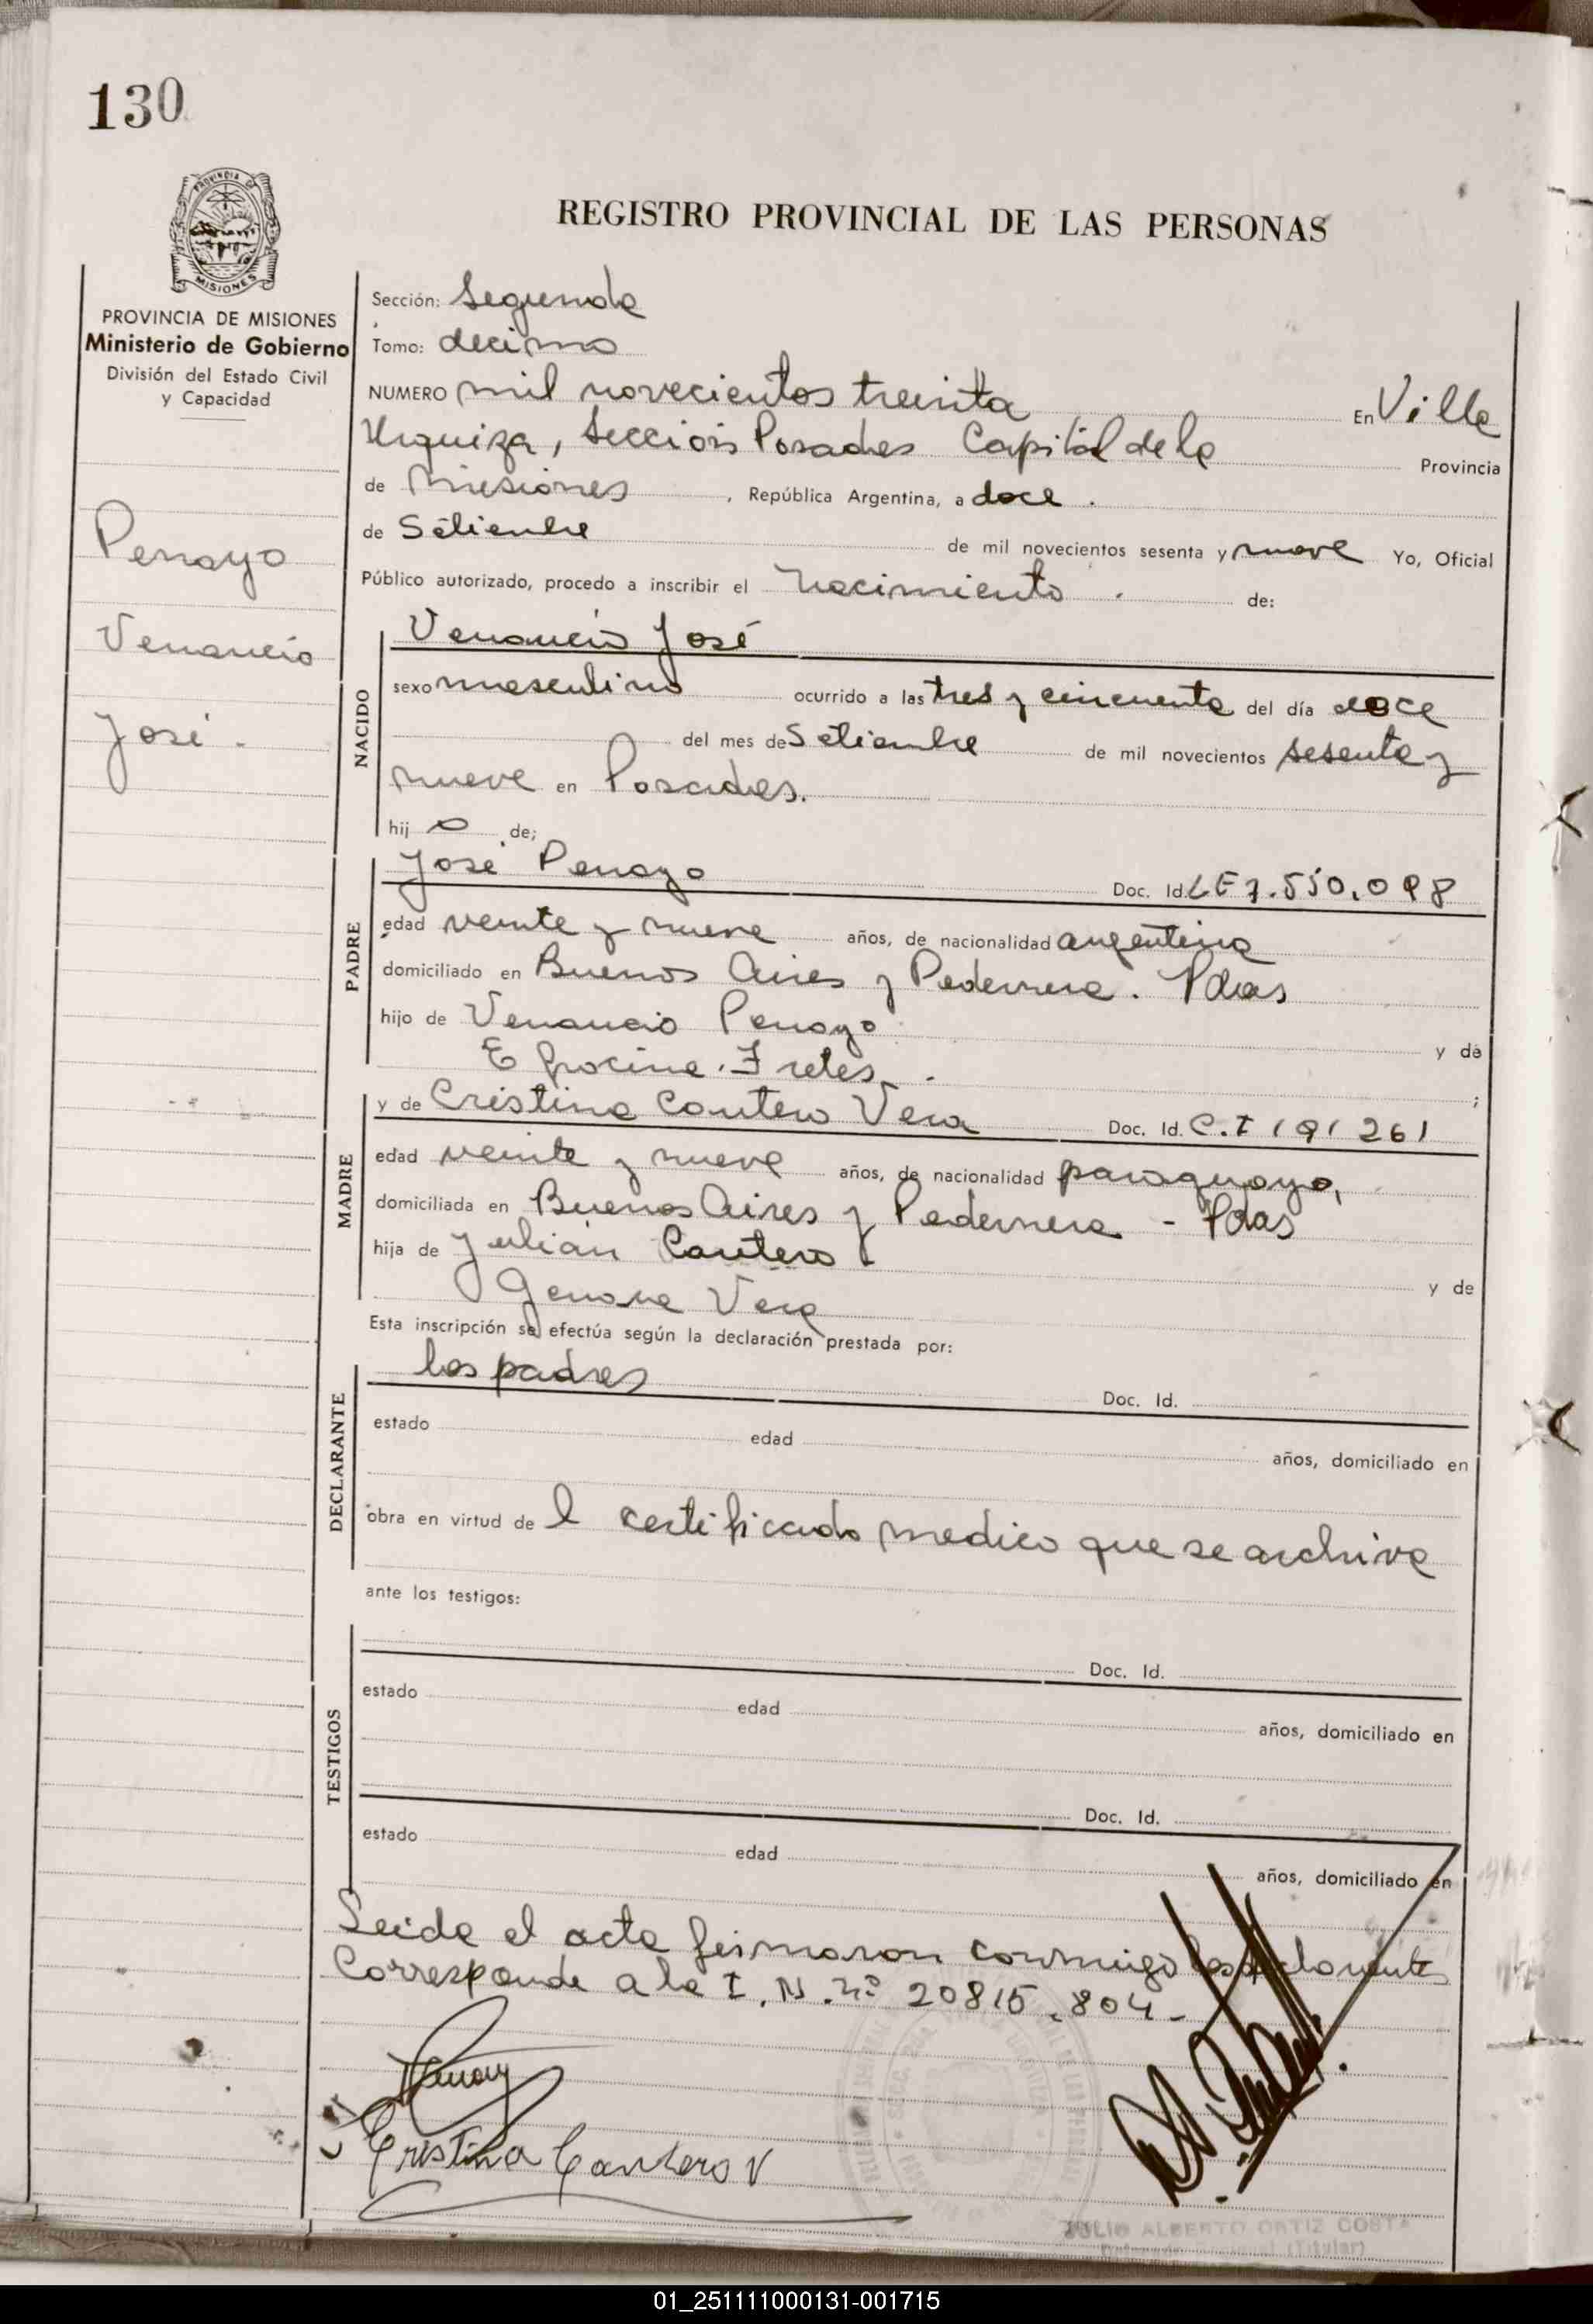 130
PROVINCIA DE MISIONES
REGISTRO PROVINCIAL DE LAS PERSONAS
PROVINCIA DE MISIONES
Ministerio de Gobierno
División del Estado Civil
y Capacidad
Penayo
Venancio
José.
Sección: Segunda
Tomo: decimo
NUMERO mil novecientos treinta En Villa
Urquiza, Sección Posadas Capital de la Provincia
de Misiones, República Argentina, a doce.
de Setiembre de mil novecientos sesenta y nueve Yo, Oficial
Público autorizado, procedo a inscribir el nacimiento. de:
NACIDO
Venancio José
sexo masculino ocurrido a las tres y cincuenta del día doce
del mes de Setiembre de mil novecientos sesenta y
nueve en Posadas.
hij o de;
PADRE
José Penayo Doc. Id. LE 7.550.098
edad veinte y nueve años, de nacionalidad argentina
domiciliado en Buenos Aires y Pedernera. Pdas
hijo de Venancio Penayo y de
Efrocina Fretes.;
MADRE
y de Cristina Cantero Vera Doc. Id. C.I 191261
edad veinte y nueve años, de nacionalidad paraguaya,
domiciliada en Buenos Aires y Pedernera - Pdas
hija de Julián Cantero y de
Genara Vera
Esta inscripción se efectúa según la declaración prestada por:
DECLARANTE
los padres Doc. Id.
estado edad años, domiciliado en
obra en virtud de l certificado medico que se archiva
ante los testigos:
TESTIGOS
Doc. Id.
estado edad años, domiciliado en
Doc. Id.
estado edad años, domiciliado en
Leida el acta firmaron conmigo los declarantes
Corresponde a la I.N.nº 20815.804-
Cristina Cantero V
JULIO ALBERTO ORTIZ COSTA
(Titular)
01_251111000131-001715